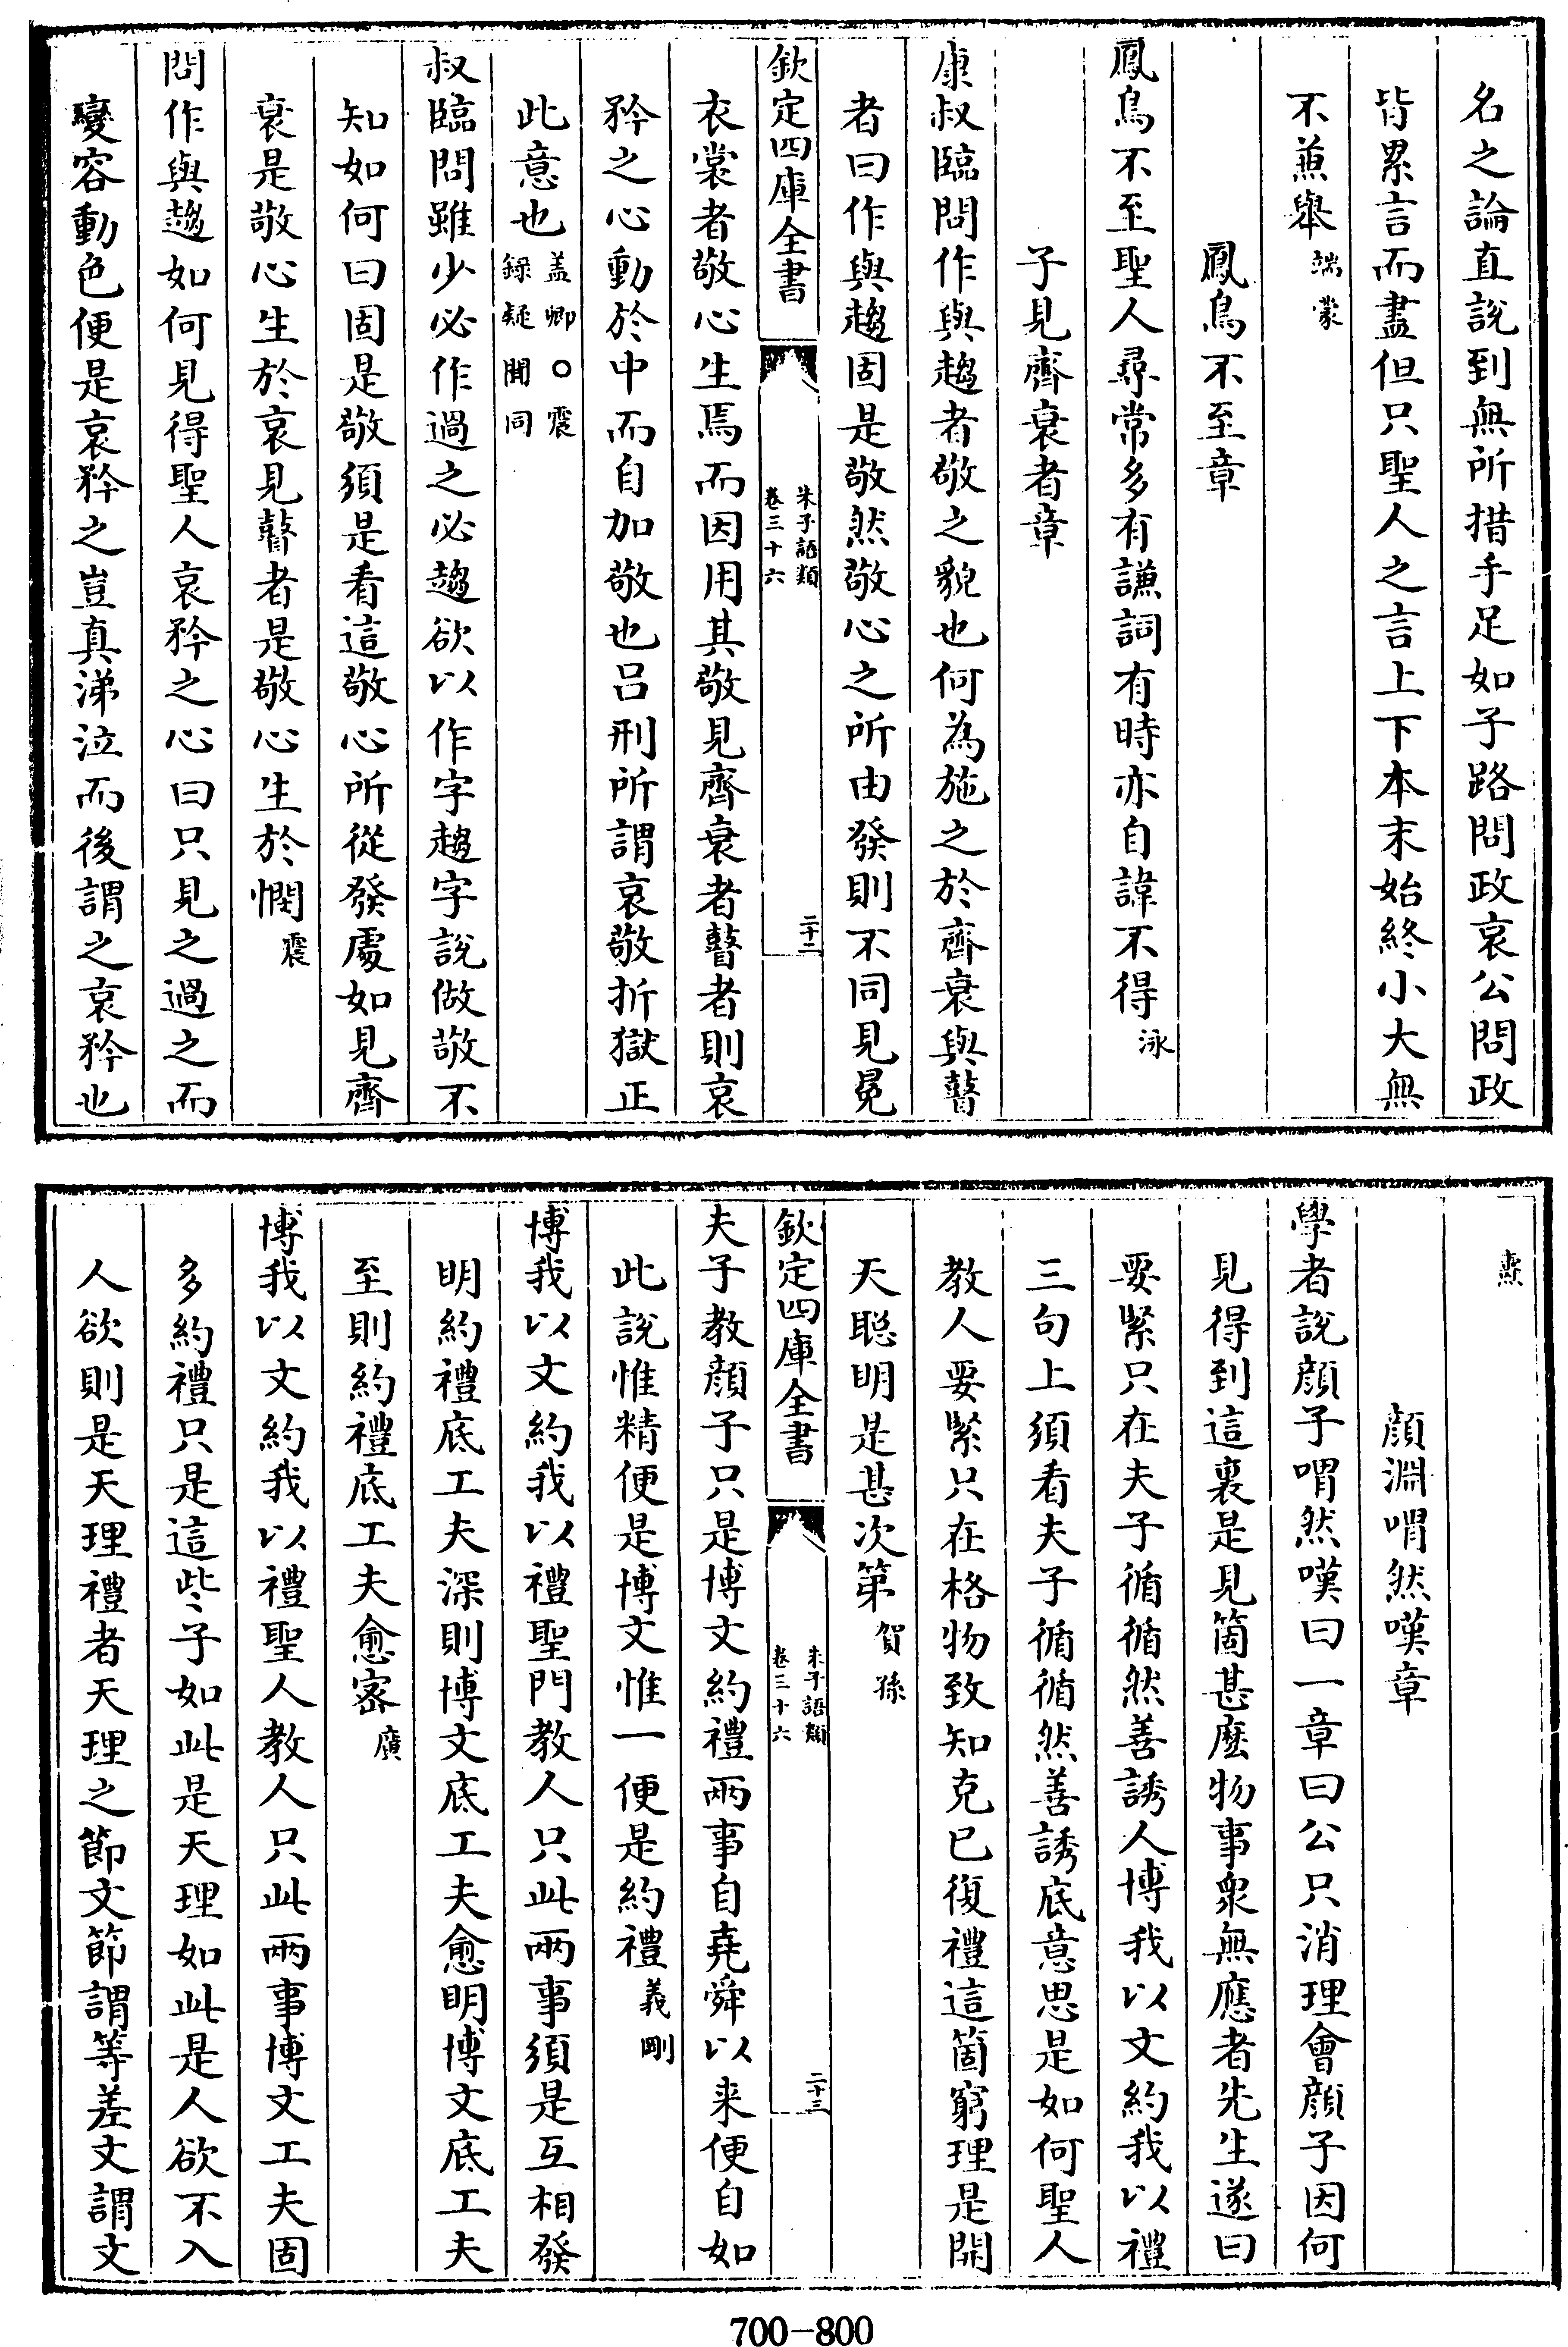 名之論直說到無所措手足如子路問政哀公問政
皆累言而盡但只聖人之言上下本末始終小大無
不兼舉端蒙
鳳鳥不至章
鳳鳥不至聖人尋常多有謙詞有時亦自諱不得泳
子見齊衰者章
康叔臨問作與趨者敬之貌也何為施之於齊衰與瞽
者曰作與趨固是敬然敬心之所由發則不同見冕
欽定四庫全書
朱子語類
卷三十六
二十二
衣裳者敬心生焉而因用其敬見齊衰者瞽者則哀
矜之心動於中而自加敬也呂刑所謂哀敬折獄正
此意也蓋卿○震
錄疑聞同
叔臨問雖少必作過之必趨欲以作字趨字說做敬不
知如何曰固是敬須是看這敬心所從發處如見齊
衰是敬心生於哀見瞽者是敬心生於憫震
問作與趨如何見得聖人哀矜之心曰只見之過之而
變容動色便是哀矜之豈真涕泣而後謂之哀矜也
燾
顏淵喟然嘆章
學者說顏子喟然嘆曰一章曰公只消理會顏子因何
見得到這裏是見箇甚麽物事衆無應者先生遂曰
要緊只在夫子循循然善誘人博我以文約我以禮
三句上須看夫子循循然善誘底意思是如何聖人
教人要緊只在格物致知克己復禮這箇窮理是開
天聰明是甚次第賀孫
欽定四庫全書
朱子語類
卷三十六
二十三
夫子教顏子只是博文約禮兩事自堯舜以来便自如
此說惟精便是博文惟一便是約禮義剛
博我以文約我以禮聖門教人只此兩事須是互相發
明約禮底工夫深則博文底工夫愈明博文底工夫
至則約禮底工夫愈密廣
博我以文約我以禮聖人教人只此兩事博文工夫固
多約禮只是這些子如此是天理如此是人欲不入
人欲則是天理禮者天理之節文節謂等差文謂文
700-800